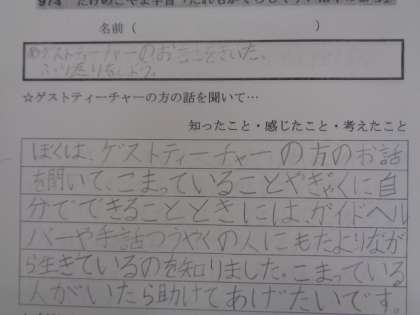 名前（　　　　　　　　）
めゲストティーチャーのお
ふり返りをしよう。
☆ゲストティーチャーの方の話を聞いて…
知ったこと・感じたこと・考えたこと
ぼくは、ゲストティーチャーの方のお話
を聞いて、こまっていることやぎゃくに自
分でできることときには、ガイドヘル
パーや手話つうやくの人にもたよりなが
ら生きているのを知りました。こまっている
人がいたら助けてあげたいです。